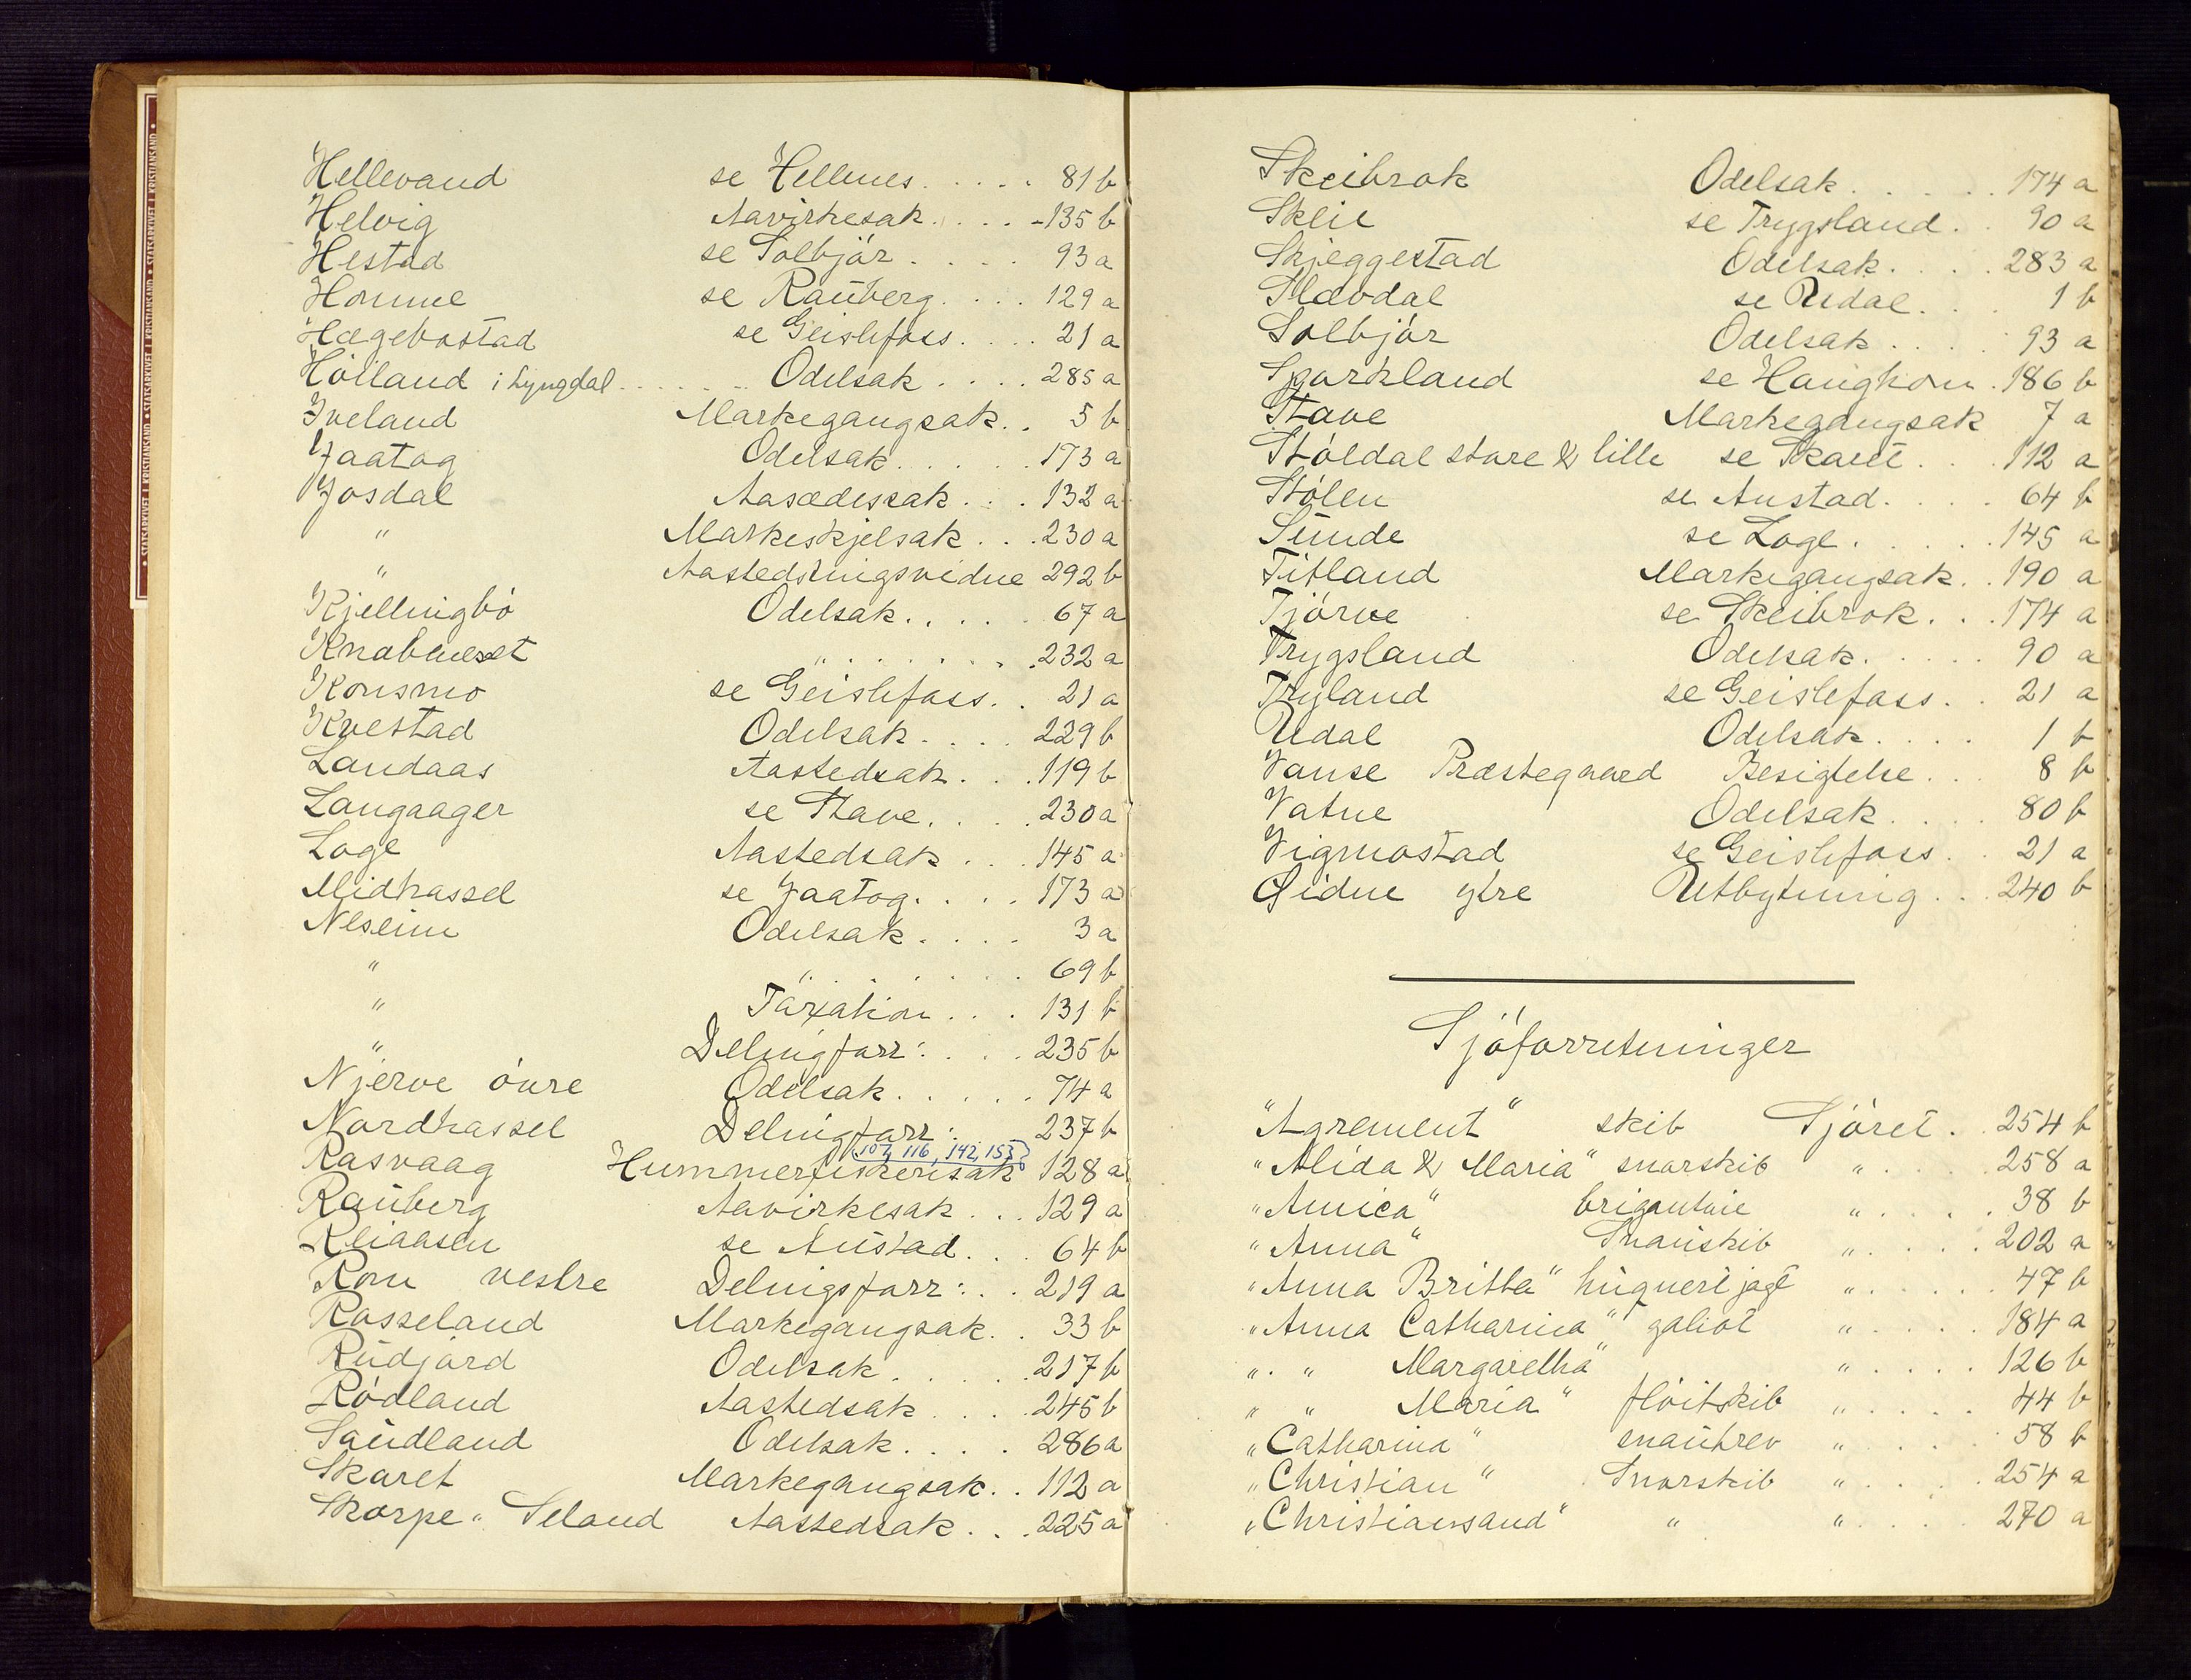 Hellevand se Hellenes. . . . . 81 b
Helvig Aavirkesak. . . . . 135 b
Hestad se Solbjör . . . . 93 a
Homme se Rauberg. . . . 129 a
Hægebostad se Geislefoss. . . . 21 a
Hölland i Lyngdal . . . . . . Odelsak . . . . 285 a
Iveland Markegangsak. . 5 b
Jaatog Odelsak. . . . . 173 a
Josdal Aasædessak . . . 132 a
" Markeskjelsak . . . 230 a
" Aastedstingsvidne 292 b
Kjellingbö Odelsak. . . . . 67 a
Knabeneset " . . . . . . . 232 a
Konsmo se Geislefoss. . 21 a
Kvestad Odelsak. . . . 229 b
Landaas Aastedsak. . . 119 b
Langaager se Stave. . . . 230 a
Loge Aastedsak . . . 145 a
Midhassel se Jaatog. . . . 173 a
Neseim Odelsak. . . . 3 a
" " . . . . . . . 69 b
" Taxation . . . 131 b
" Delingforr: . . . 235 b
Njerve övre Odelsak. . . . . 74 a
Nordhassel Delingforr: 237 b
(107, 116, 142, 153)
Rasvaag Hummerfiskerisak 128 a
Rauberg Aavirkesak. . . 129 a
Reiaasen se Austad. . . 64 b
Rom vestre Delingsforr: . . 219 a
Rosseland Markegangsak. . 33 b
Rudjord Odelsak. . . . . 217 b
Rödland Aastedsak. . . . 245 b
Saudland Odelsak. . . . 286 a
Skaret Markegangsak. . 112 a
Skorpe " Seland Aastedsak. . . 225 a
Skeibrok Odelsak. . . . . 174 a
Skeie se Trygsland. . 90 a
Skjeggestad Odelsak. . . . 283 a
Slævdal se Udal. . . 1 b
Solbjör Odelsak . . . . 93 a
Spærkland se Haughom . 186 b
Stave Markegangsak 7 a
Stöldal store & lille se Skaret. . . 112 a
Stölen se Austad. . . . 64 b
Sunde se Loge. . . . . 145 a
Titland Markegangsak. . 190 a
Tjörve se Skeibrok. . . 174 a
Trygsland Odelsak. . . . . 90 a
Tryland se Geislefoss. . 21 a
Udal Odelsak. . . . 1 b
Vanse Præstegaard Besigtelse. . . 8 b
Vatne Odelsak. . . . 80 b
Vigmostad se Geislefoss. . 21 a
Öidne ytre Utbytning. . . 240 b
Sjöforretninger
"Agrement" skib Sjöret . . 254 b
"Alida & Maria" snorskib " . . . . 258 a
"Amica" brigantine " . . . . . 38 b
"Anna" Snauskib " . . . . . 202 a
"Anna Britha" huquert jagt " . . . . . . 47 b
"Anna Catharina" galiot " . . . . . 184 a
" " Margaretha" " . . . . . 126 b
" " Maria" flöitskib " . . . . . 44 b
"Catharina" snaubrev " . . . . . 58 b
"Christian" Snorskib " . . . . . 254 a
"Christiansand" " " . . . . . 270 a
• STATSARKIVET I KRISTIANSAND • STATSARKIVET I KRISTIANSAND • STATSARKIVET I KRISTIANSAND •